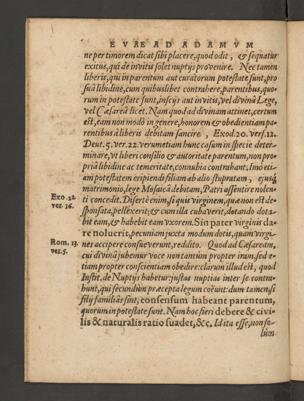 EVAE AD ADAMVM
ne per timorem dicat sibi placere, quod odit, & sequatur
exitus, qui de invitis solet nuptijs provenire. Nec tamen
liberis, qui in parentum aut curatorum potestate sunt, pro
suâ libidine, cum quibuslibet contrahere, parentibus, quo-
rum in potestate sunt, inscijs aut invitis, vel divinâ Lege,
vel Cæsareâ licet. Nam quod ad divinam attinet, certum
est, eam non modò in genere, honorem & obedientiam pa-
rentibus à liberis debitam sancire, Exod. 20. vers. 12.
Deut. 5. ver. 22. verumetiam hunc casum in specie deter-
minare, vt liberi consilio & autoritate parentum, non pro-
priâ libidine ac temeritate, connubia contrahant, Imò eti-
am potestatem eripiendi filiam ab alio stupratam, eiusq́
matrimonio, lege Mosaicâ debitam, Patri assentire nolen-
ti concedit. Disertè enim, si quis virginem, quæ non est de-
Exo. 22.
ver. 16.
sponsata, pellexerit, & cum illa cubaverit, dotando dota-
bit eam, & habebit eam vxorem. Sin pater virginis da-
re noluerit, pecuniam juxta modum dotis, quam virgi-
Rom. 13.
ver. 5.
nes accipere consueverunt, reddito. Quod ad Cæsaream,
cui divina jubemur voce non tantum propter iram, sed e-
tiam propter conscientiam obedire: clarum illud est, quod
Justit. de Nuptijs habetur: justas nuptias inter se contra-
hunt, qui secundùm præcepta legum coëunt: dum tamen si
filij familiâs sint, consensum habeant parentum,
quorum in potestate sunt. Nam hoc fieri debere & civi-
lis & naturalis ratio suadet, &c. Id ita esse, non so-
lùm